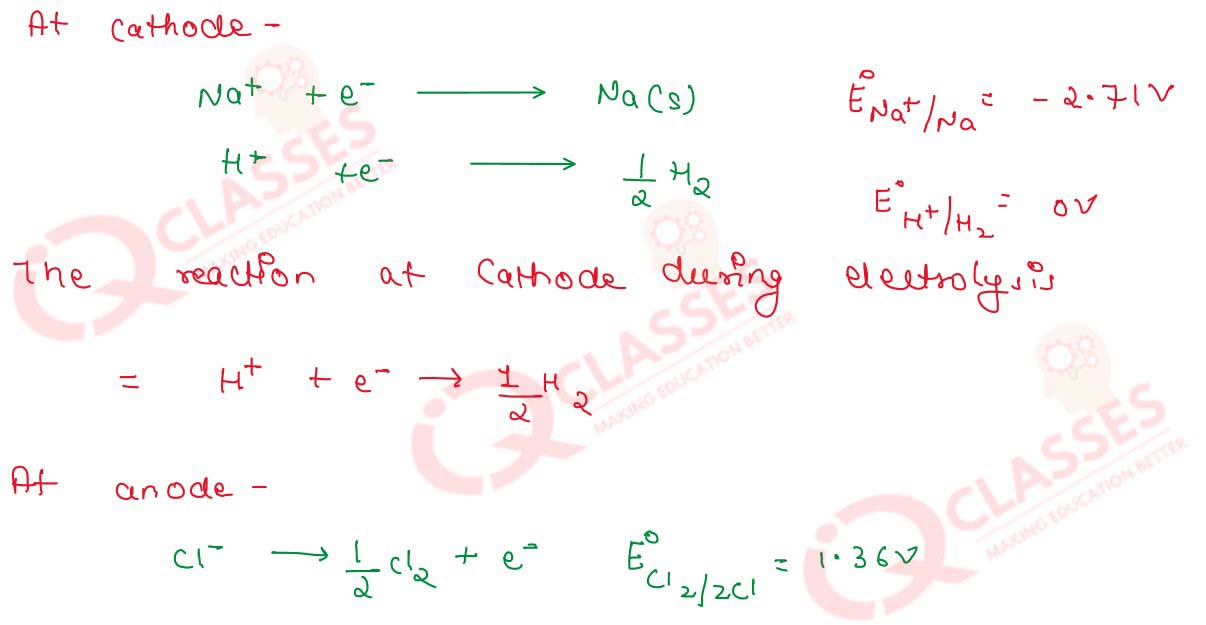 At cathode -
Na⁺ + e⁻ ⟶ Na(s) E°Na⁺/Na = - 2.71V
H⁺ + e⁻ ⟶ 1/2 H₂ E°H⁺/H₂ = 0V
The reaction at Cathode during electrolysis
= H⁺ + e⁻ → 1/2 H₂
At anode -
Cl⁻ ⟶ 1/2 Cl₂ + e⁻ E°Cl₂/2Cl = 1.36V
iQ CLASSES
MAKING EDUCATION BETTER
iQ CLASSES
MAKING EDUCATION BETTER
iQ CLASSES
MAKING EDUCATION BETTER